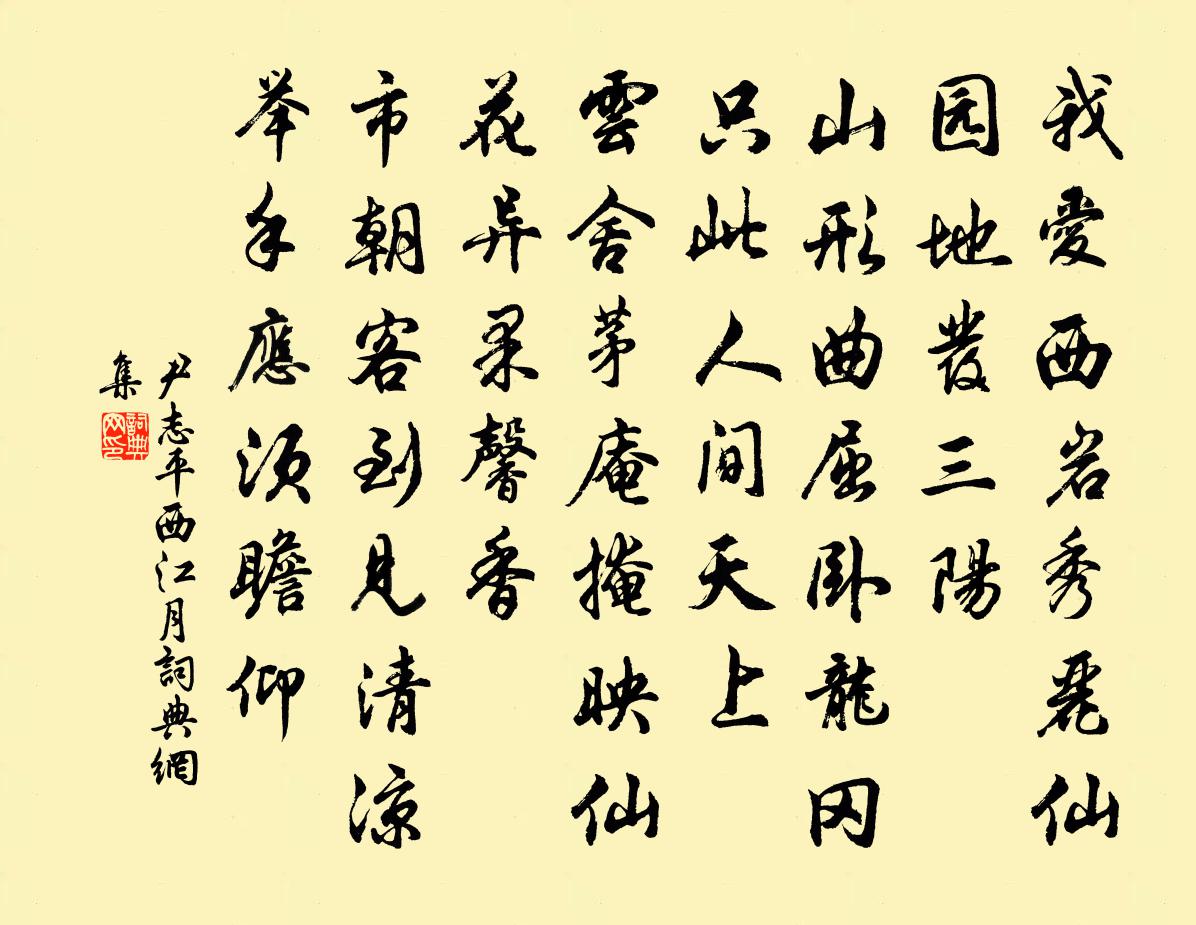 我愛西岩秀麗仙
园地發三陽
山形曲屈卧龍冈
只此人間天上
雲舍茅庵掩映仙
花异果馨香
市朝客到見清凉
举手應须瞻仰
尹志平西江月詞典網
集
詞典
网印